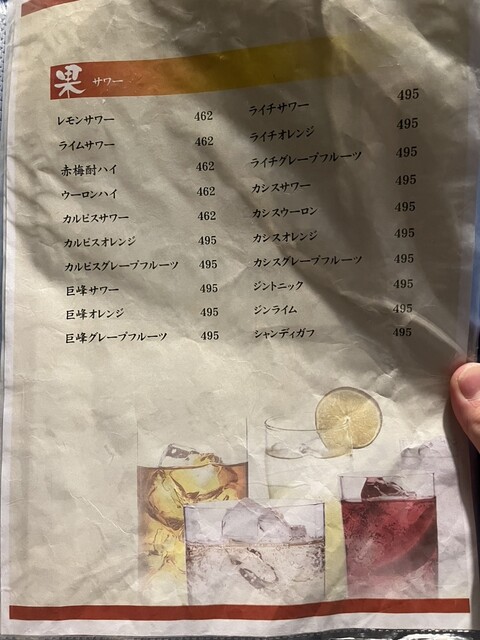 果 サワー
レモンサワー 462
ライムサワー 462
赤梅酎ハイ 462
ウーロンハイ 462
カルピスサワー 462
カルピスオレンジ 495
カルピスグレープフルーツ 495
巨峰サワー 495
巨峰オレンジ 495
巨峰グレープフルーツ 495
ライチサワー 495
ライチオレンジ 495
ライチグレープフルーツ 495
カシスサワー 495
カシスウーロン 495
カシスオレンジ 495
カシスグレープフルーツ 495
ジントニック 495
ジンライム 495
シャンディガフ 495